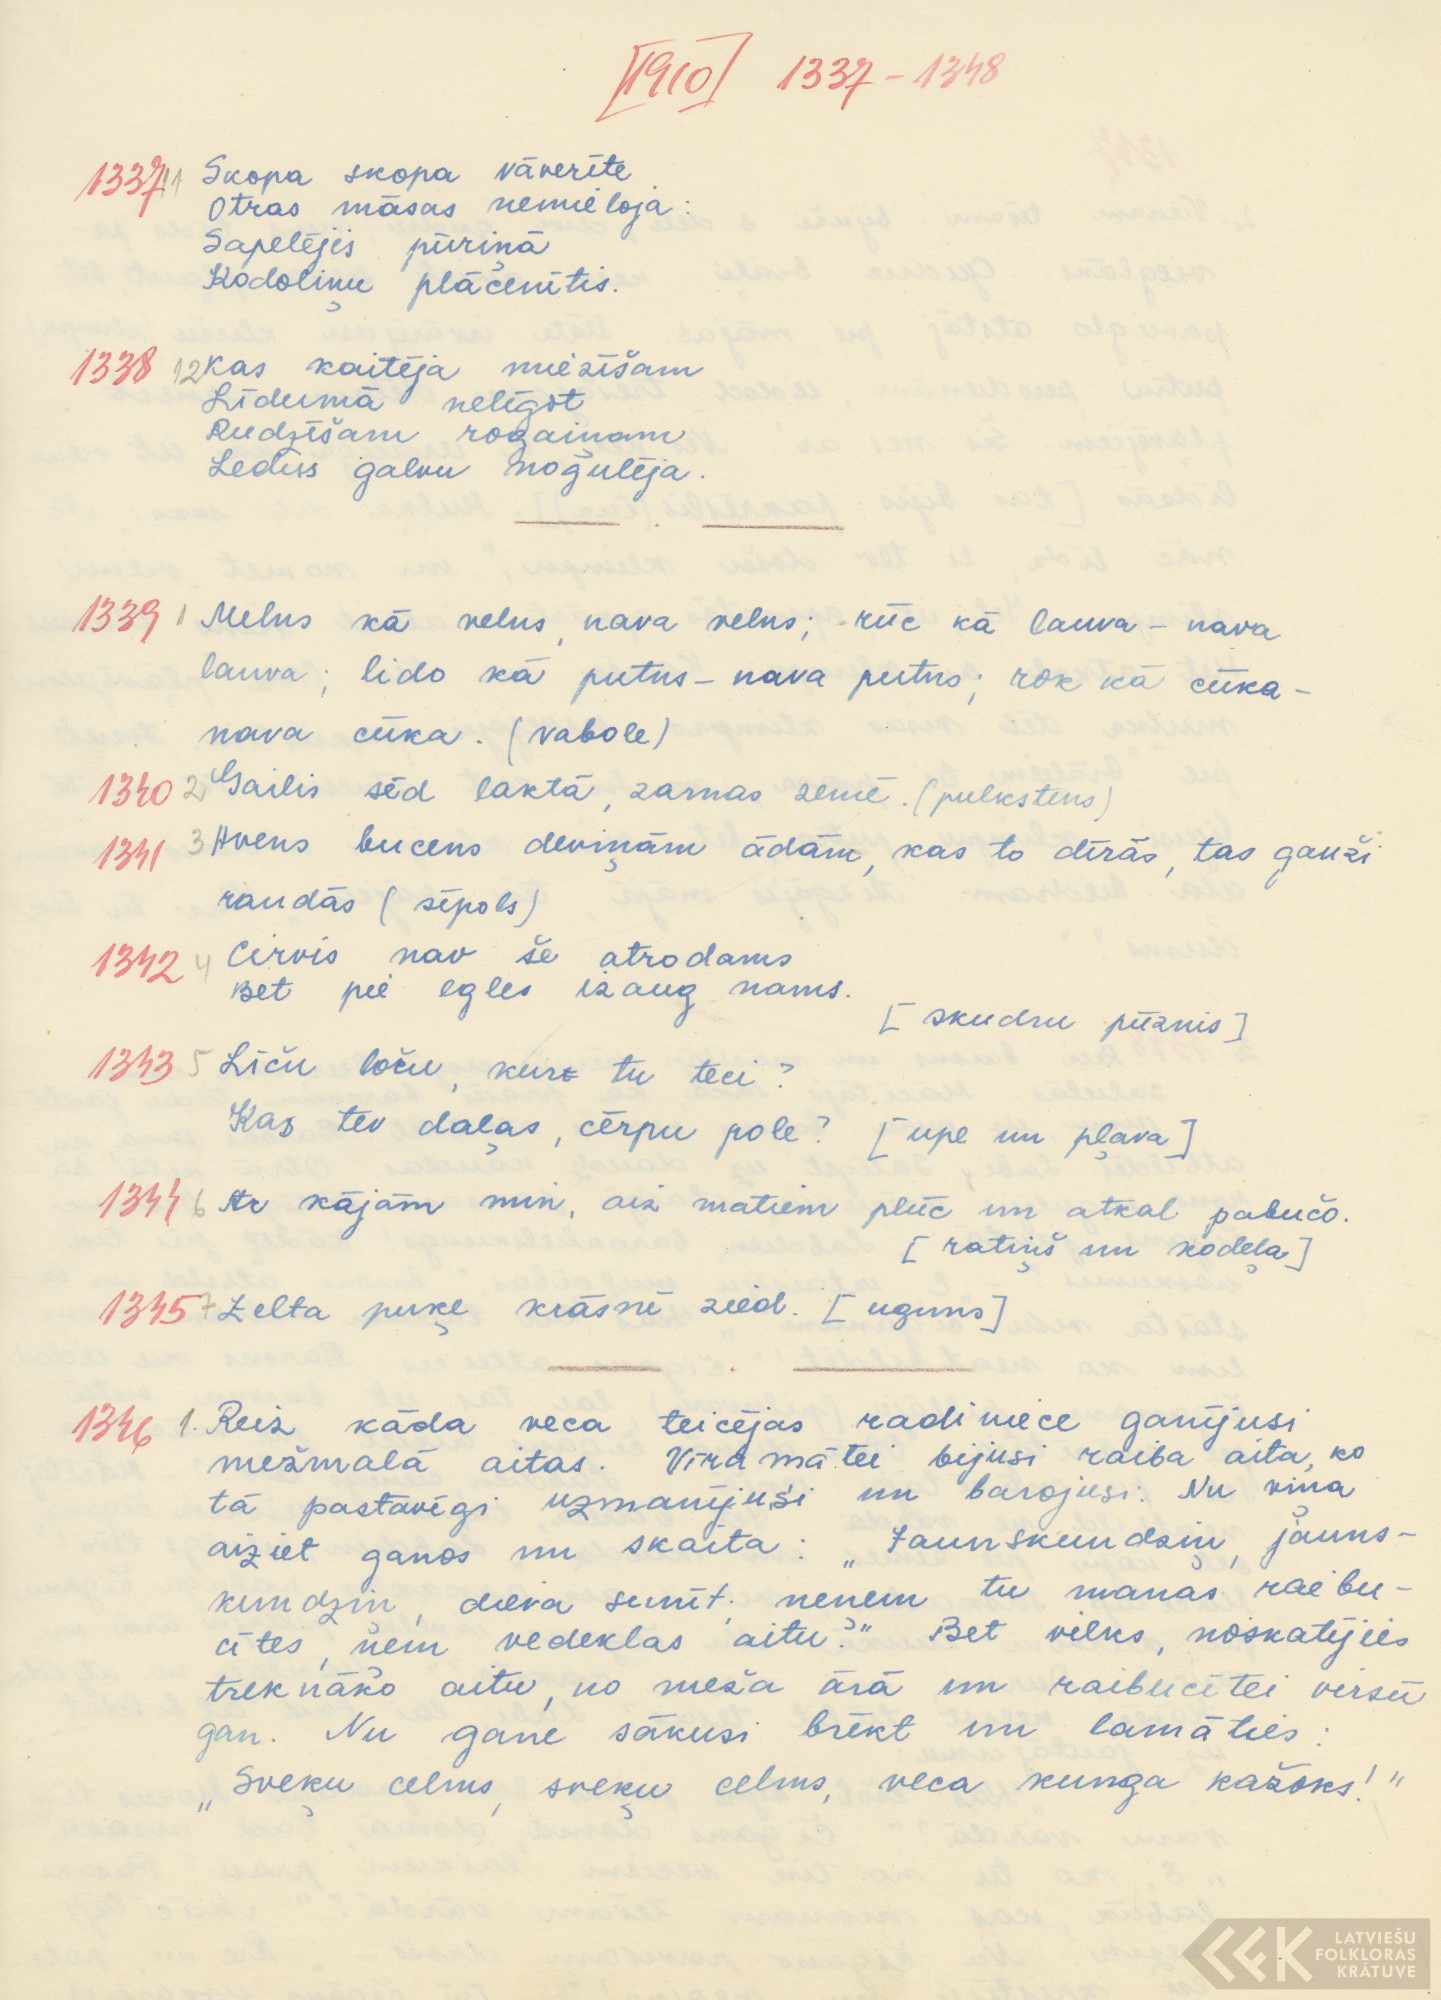 [1910] 1337 – 1348
1337 11 Skopa skopa vāverīte
Otras māsas nemieloja:
Sapelējis pūriņā
Kodoliņu plācenītis.
1338 12 Kas kaitēja miezīšam
Līdumā nelīgot
Rudzīšam rogainam
Lediss galvu noguļēja.
1339 1 Melns kā velns, nava velns; rūc kā lauva – nava
lauva; lido kā putns – nava putns; rok kā cūka –
nava cūka. (vabole)
1340 2 Gailis sēd laktā, zarnas zemē. (pulkstens)
1341 3 Avens bucens deviņām ādām, kas to dīrās, tas gauži
raudās (sīpols)
1342 4 Cirvis nav še atrodams
Bet pie egles izaug nams.
[skudru pūznis]
1343 5 Līču loču, kurz tu teci?
Kas tev daļas, cērpu pole? [upe un pļava]
1344 6 Ar kājām min, aiz matiem plūc un atkal pabučo.
[ratiņš un kodeļa]
1345 7 Zelta puķe krāsnē zied. [uguns]
1346 1. Reiz kāda veca teicējas radiniece ganījusi
mežmalā aitas. Vīramātei bijusi raiba aita, ko
tā pastāvīgi uzmanījusi un barojusi. Nu viņa
aiziet ganos un skaita: „Jaunskundziņ, jauns-
kundziņ, dieva sunīt, neņem tu manas raibu-
cītes, ņem vedeklas aitu?" Bet vilks, noskatījies
treknāko aitu, no meža ārā un raibucītei virsū
gan. Nu gane sākusi brēkt un lamāties:
„Sveķu celms, sveķu celms, veca kunga kažoks!"
LATVIEŠU
FOLKLORAS
KRĀTUVE